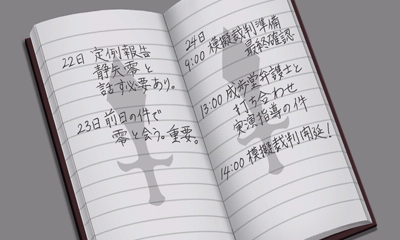 22日 定例報告
静矢零と
話す必要あり。
23日 前日の件で
零と会う。重要。
24日
9:00 模擬裁判準備
最終確認
13:00 成歩堂弁護士と
打ち合わせ
実演指導の件
14:00 模擬裁判開廷!